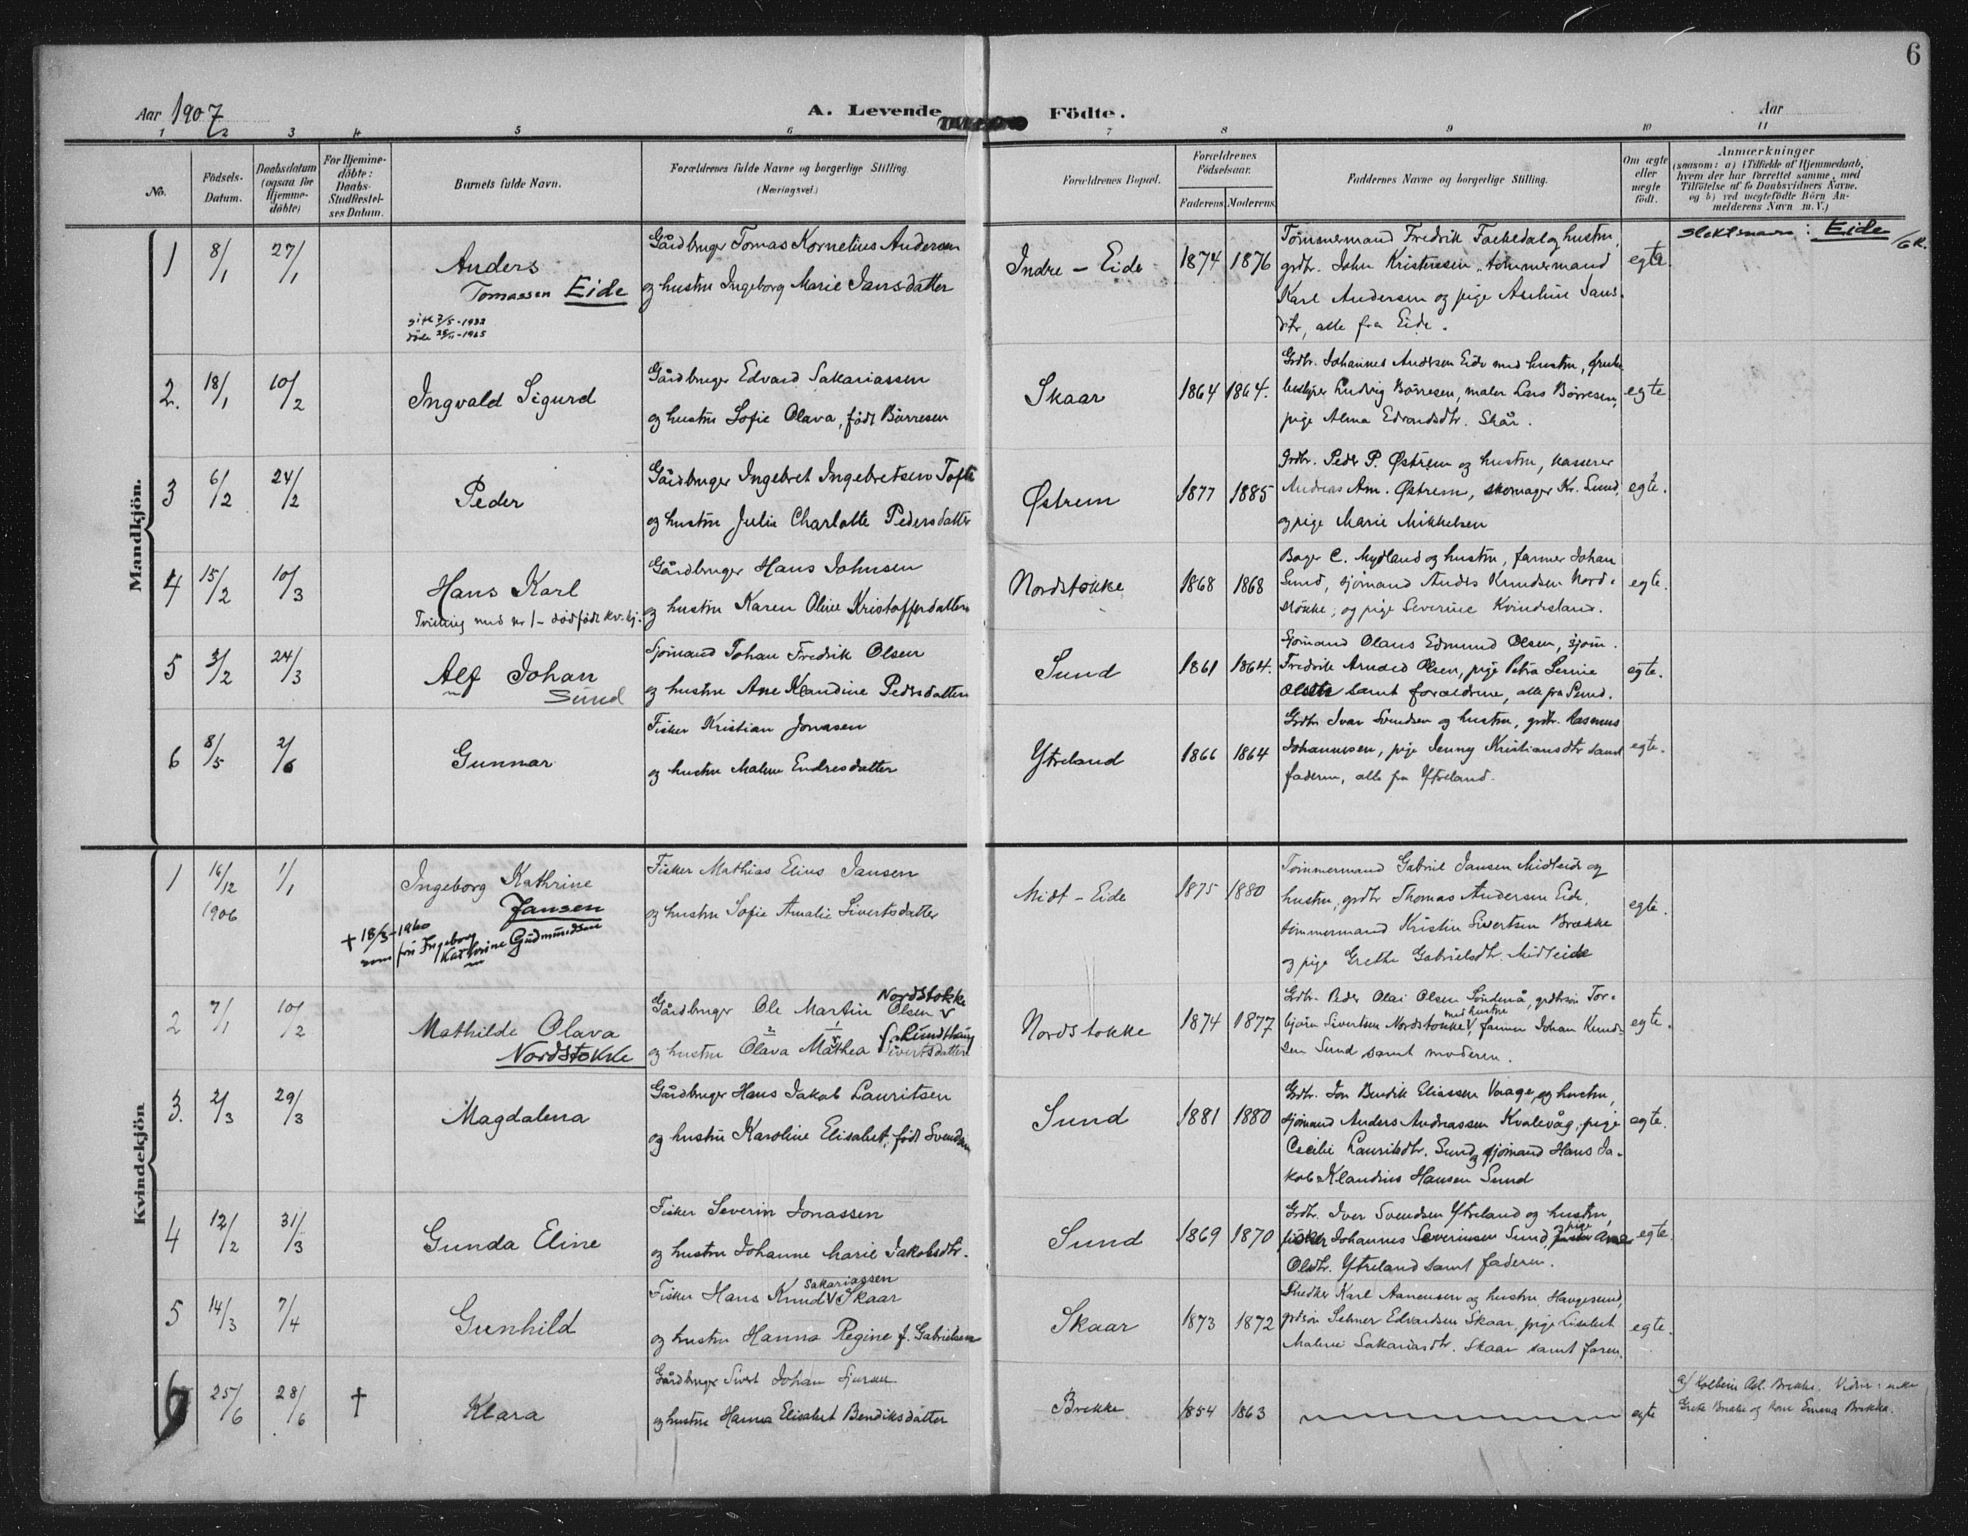 6
Aar 1907
A. Levende Födte.
Aar
1 2 3 4 5 6 7 8 9 10 11
No.
Födsels-
Datum.
Daabsdatum
(ogsaa for
Hjemme-
döbte)
For Hjemme-
döbte:
Daabs-
Stadfæstel-
ses Datum.
Barnets fulde Navn.
Forældrenes fulde Navne og borgerlige Stilling
(Næringsvei.)
Forældrenes Bopæl.
Forældrenes
Födselsaar.
Faderens
Moderens
Faddernes Navne og borgerlige Stilling.
Om ægte
eller
uægte
födt.
Anmærkninger
(saasom: a) i Tilfælde af Hjemmedaab,
hvem der har forrettet samme, med
Tilföielse af to Daabsvidners Navne,
og b) ved uægtefödte Börn An-
melderens Navn m. V.)
Mandkjön.
1 8/1 27/1
Anders
Tomassen Eide
gift 7/5-1932
döde -1965
Gårdbruger Tomas Kornelius Andersen
og hustru Ingeborg Marie Jansdatter
Indre - Eide
1874 1876
Tømmermand Fredrik hustru,
grdbr. John Kristensen, tømmermand
Karl Andersen og pige Aseline Jans-
dtr, alle fra Eide.
egte
Slektsnavn: Eide
2. 18/1 10/2
Ingvald Sigurd
Gårdbruger Edvard Sakariassen
og hustru Sofie Olava, født Børresen
Skaar
1864 1864.
Grdbr. Johannes Andersen Eide med hustru,
Ludvig Børresen, maler Lars Børresen,
pige Alma Edvardsdtr. Skår.
egte
3 6/2 24/2
Peder
Gårdbruger Ingebret Ingebretsen Tofte
og hustru Julie Charlotte Pedersdatter
Østrem
1877 1885
Grdbr. Peder P. Østrem og hustru, kasserer
Andreas Am. Østrem, skomager Kr. Sund,
og pige Marie Mikkelsen
egte.
4 15/2 10/3
Hans Karl
Tvilling med nr 1 - dødfødt kv.kj.
Gårdbruger Hans Johnsen
og hustru Karen Oline Kristoffersdatter
Nordstokke
1868 1868
Bager C. Mydland og hustru, farmer Johan
Sund, sjømand Anders Knudsen Nord-
stokke, og pige Severine Kvindesland.
egte.
5 3/2 24/3
Alf Johan
Sund
Sjømand Johan Fredrik Olsen
og hustru Ane Klandine Pedersdatter
Sund
1861 1864.
Sjømand Olaus Edmund Olsen, sjøm.
Fredrik Arnold Olsen, pige Petra Lenine
Olsdtr samt forældrene, alle fra Sund.
egte.
6 8/5 2/6
Gunnar
Fisker Kristian Jonasen
og hustru Malene Endresdatter
Ytreland
1866 1864
Grdbr Ivar Svendsen og hustru, grdbr. Rasmus
Johannesen, pige Jenny Kristiansdtr samt
faderen, alle fra Ytreland.
egte.
Kvindekjön
1 16/12 1/1
1906
Ingeborg Kathrine
Jansen
+ 18/3-1960
som fru Ingeborg
Katherine Gudmundsen
Fisker Mathias Elius Jansen
og hustru Sofie Amalie Sivertsdatter
Midt - Eide
1875 1880
Tømmermand Gabriel Jansen Midteide og
hustru, grdbr Thomas Andersen Eide,
tømmermand Kristin Sivertsen Brække
og pige Grethe Gabrielsdtr. Midteide
egte.
2 7/1 10/2
Mathilde Olava
Nordstokke
Nordstokke
Gårdbruger Ole Martin Olsen v
og hustru Olava Mathea Sivertsdatter
Nordstokke
1874 1877
Grdbr. Peder Olai Olsen Søndenå, grdbrsøn Tor-
med hustru
bjørn Sivertsen Nordstokke V, farmer Johan Knud-
sen Sund samt moderen.
egte.
3. 2/3 29/3
Magdalena
Gårdbruger Hans Jakob Lauritsen
og hustru Karoline Elisabet, født Svendsen
Sund
1881 1880
Grdbr. Jon Bendik Eliassen Vaage, og hustru,
sjømand Anders Andreassen Kvalevåg, pige
Cecilie Lauritsdtr. Sund og sjømand Hans Ja-
kob Klandius Hansen Sund
egte.
4 12/2 31/3
Gunda Eline
Fisker Severin Jonassen
og hustru Johanne Marie Jakobsdtr.
Sund
1869 1870
Grdbr. Iver Svendsen Ytreland og hustru,
fisker Johannes Severinsen Sund, og pige
Olsdtr. Ytreland samt faderen.
egte.
5 14/3 7/4
Gunhild
Sakariassen
Fisker Hans Knud V Skaar
og hustru Hanna Regine f. Gabrielsen
Skaar
1873 1872
Karl Aanensen og hustru, Haugesund,
grdsøn Selmer Edvardsen Skaar, pige Lisabet
Malene Sakariasdtr. Skaar samt faren.
egte.
6 25/6 28/6 †
Klara
Gårdbruger Sivert Johan
og hustru Hanna Elisabet Bendiksdatter
Brekke
1854 1863
egte
a) Brekke. Vidner: enke
Grete Brekke og kone Emma Brekke.